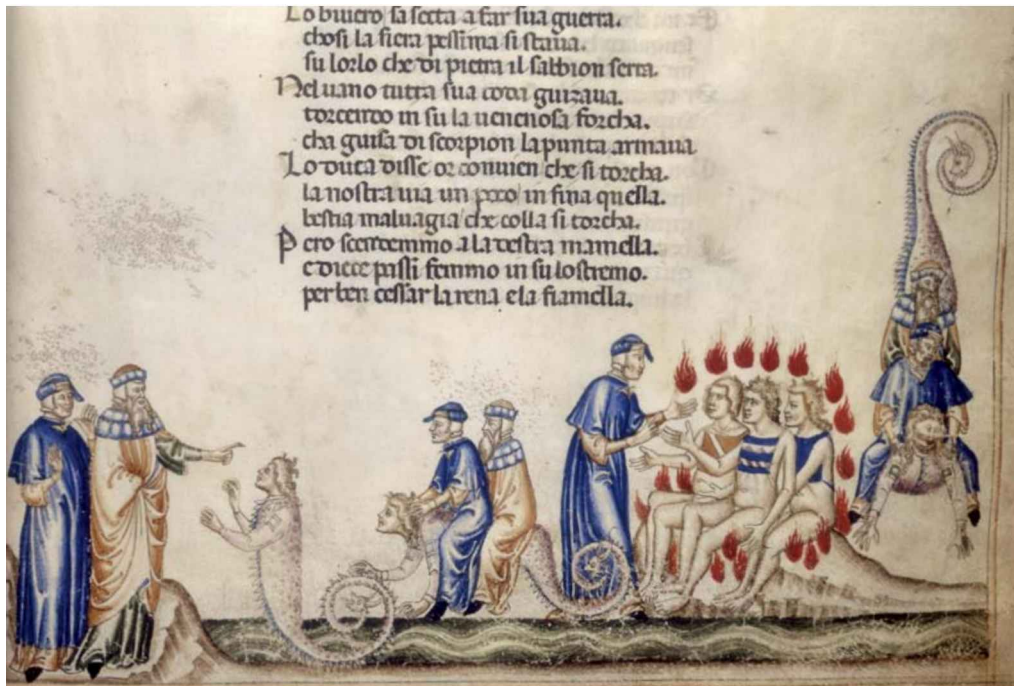 Lo biuero sa setta a far sua guerra.
chosi la fiera pessima si staua.
su lorlo che di pietra il sabbion serra.
Nel uano tutta sua coda guizaua.
torcendo in su la uenenosa forcha.
cha guisa di scorpion la punta armaua
Lo duca disse or conuien che si torcha.
la nostra uia un poco in fina quella.
bestia maluagia che colla si torcha.
Pero scendemmo a la destra mamella.
e diece passi femmo in su lostremo.
per ben cessar la rena e la fiamella.